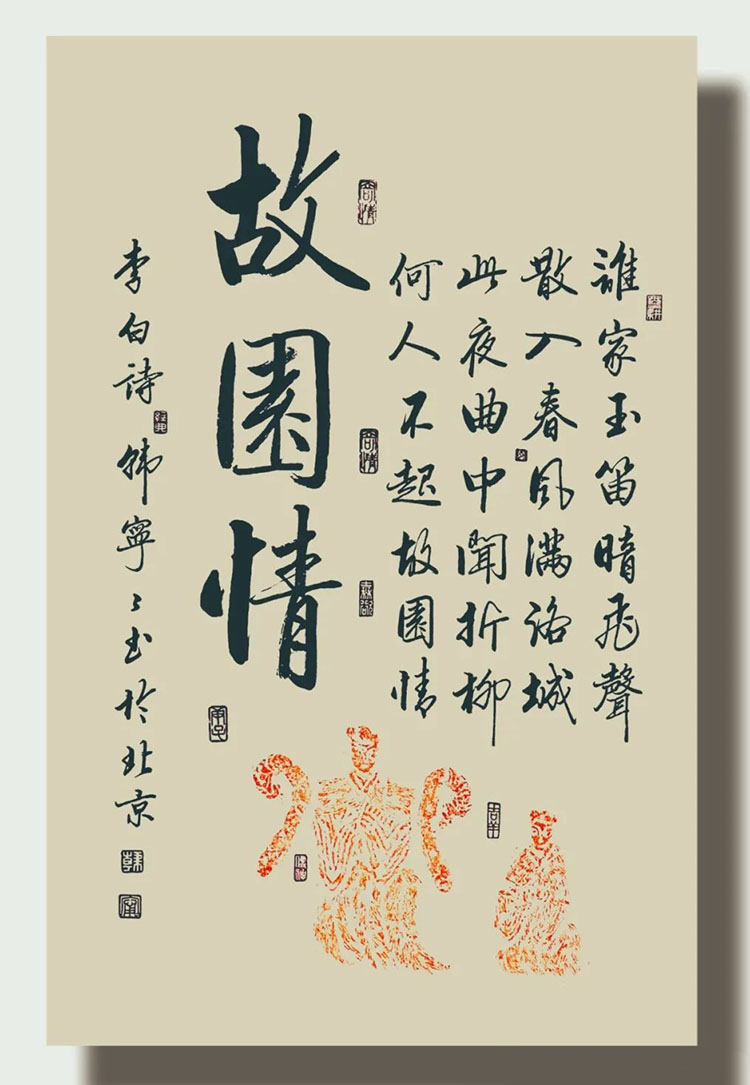 誰家玉笛暗飛聲
散入春風滿洛城
此夜曲中聞折柳
何人不起故園情
故園情
李白詩 韓寧〻書於北京